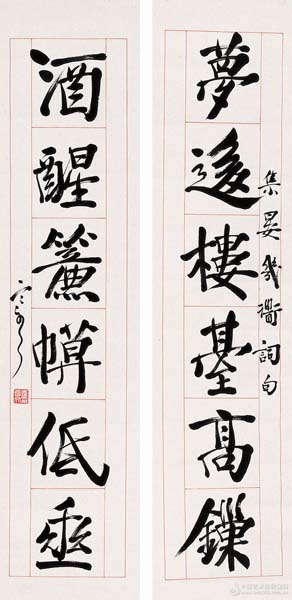 夢後樓臺高鏁
集晏幾衜詞句
酒醒簾幙低垂